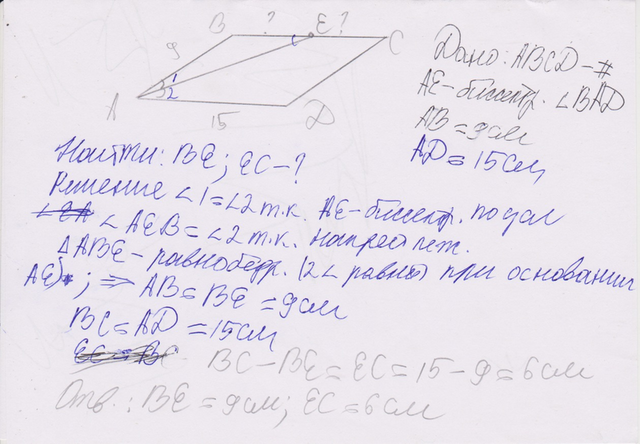 B ? E ? C
9
1
2
A
15
D
Дано: ABCD - #
AE - биссектр. ∠BAD
AB = 9 см
AD = 15 см
Найти: BE; EC - ?
Решение ∠1 = ∠2 т.к. AE - биссектр. по усл
∠AEB = ∠2 т.к. накрест леж.
△ABE - равнобедр. (2∠ равны) при основании
AE); ⇒ AB = BE = 9 см
BC = AD = 15 см
BC - BE = EC = 15 - 9 = 6 см
Отв.: BE = 9 см; EC = 6 см